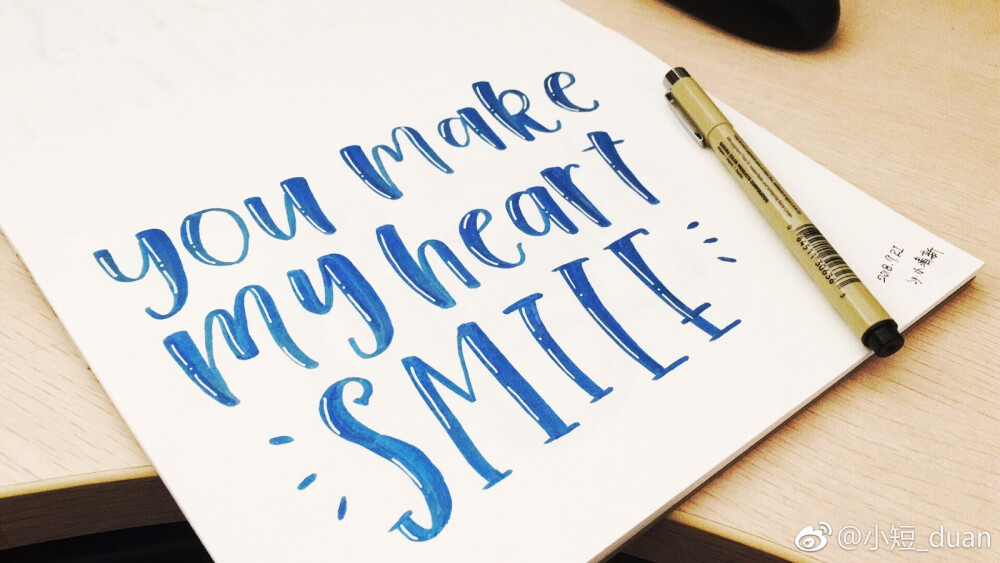 you make
my heart
SMILE
2018.9.21
@小短_duan